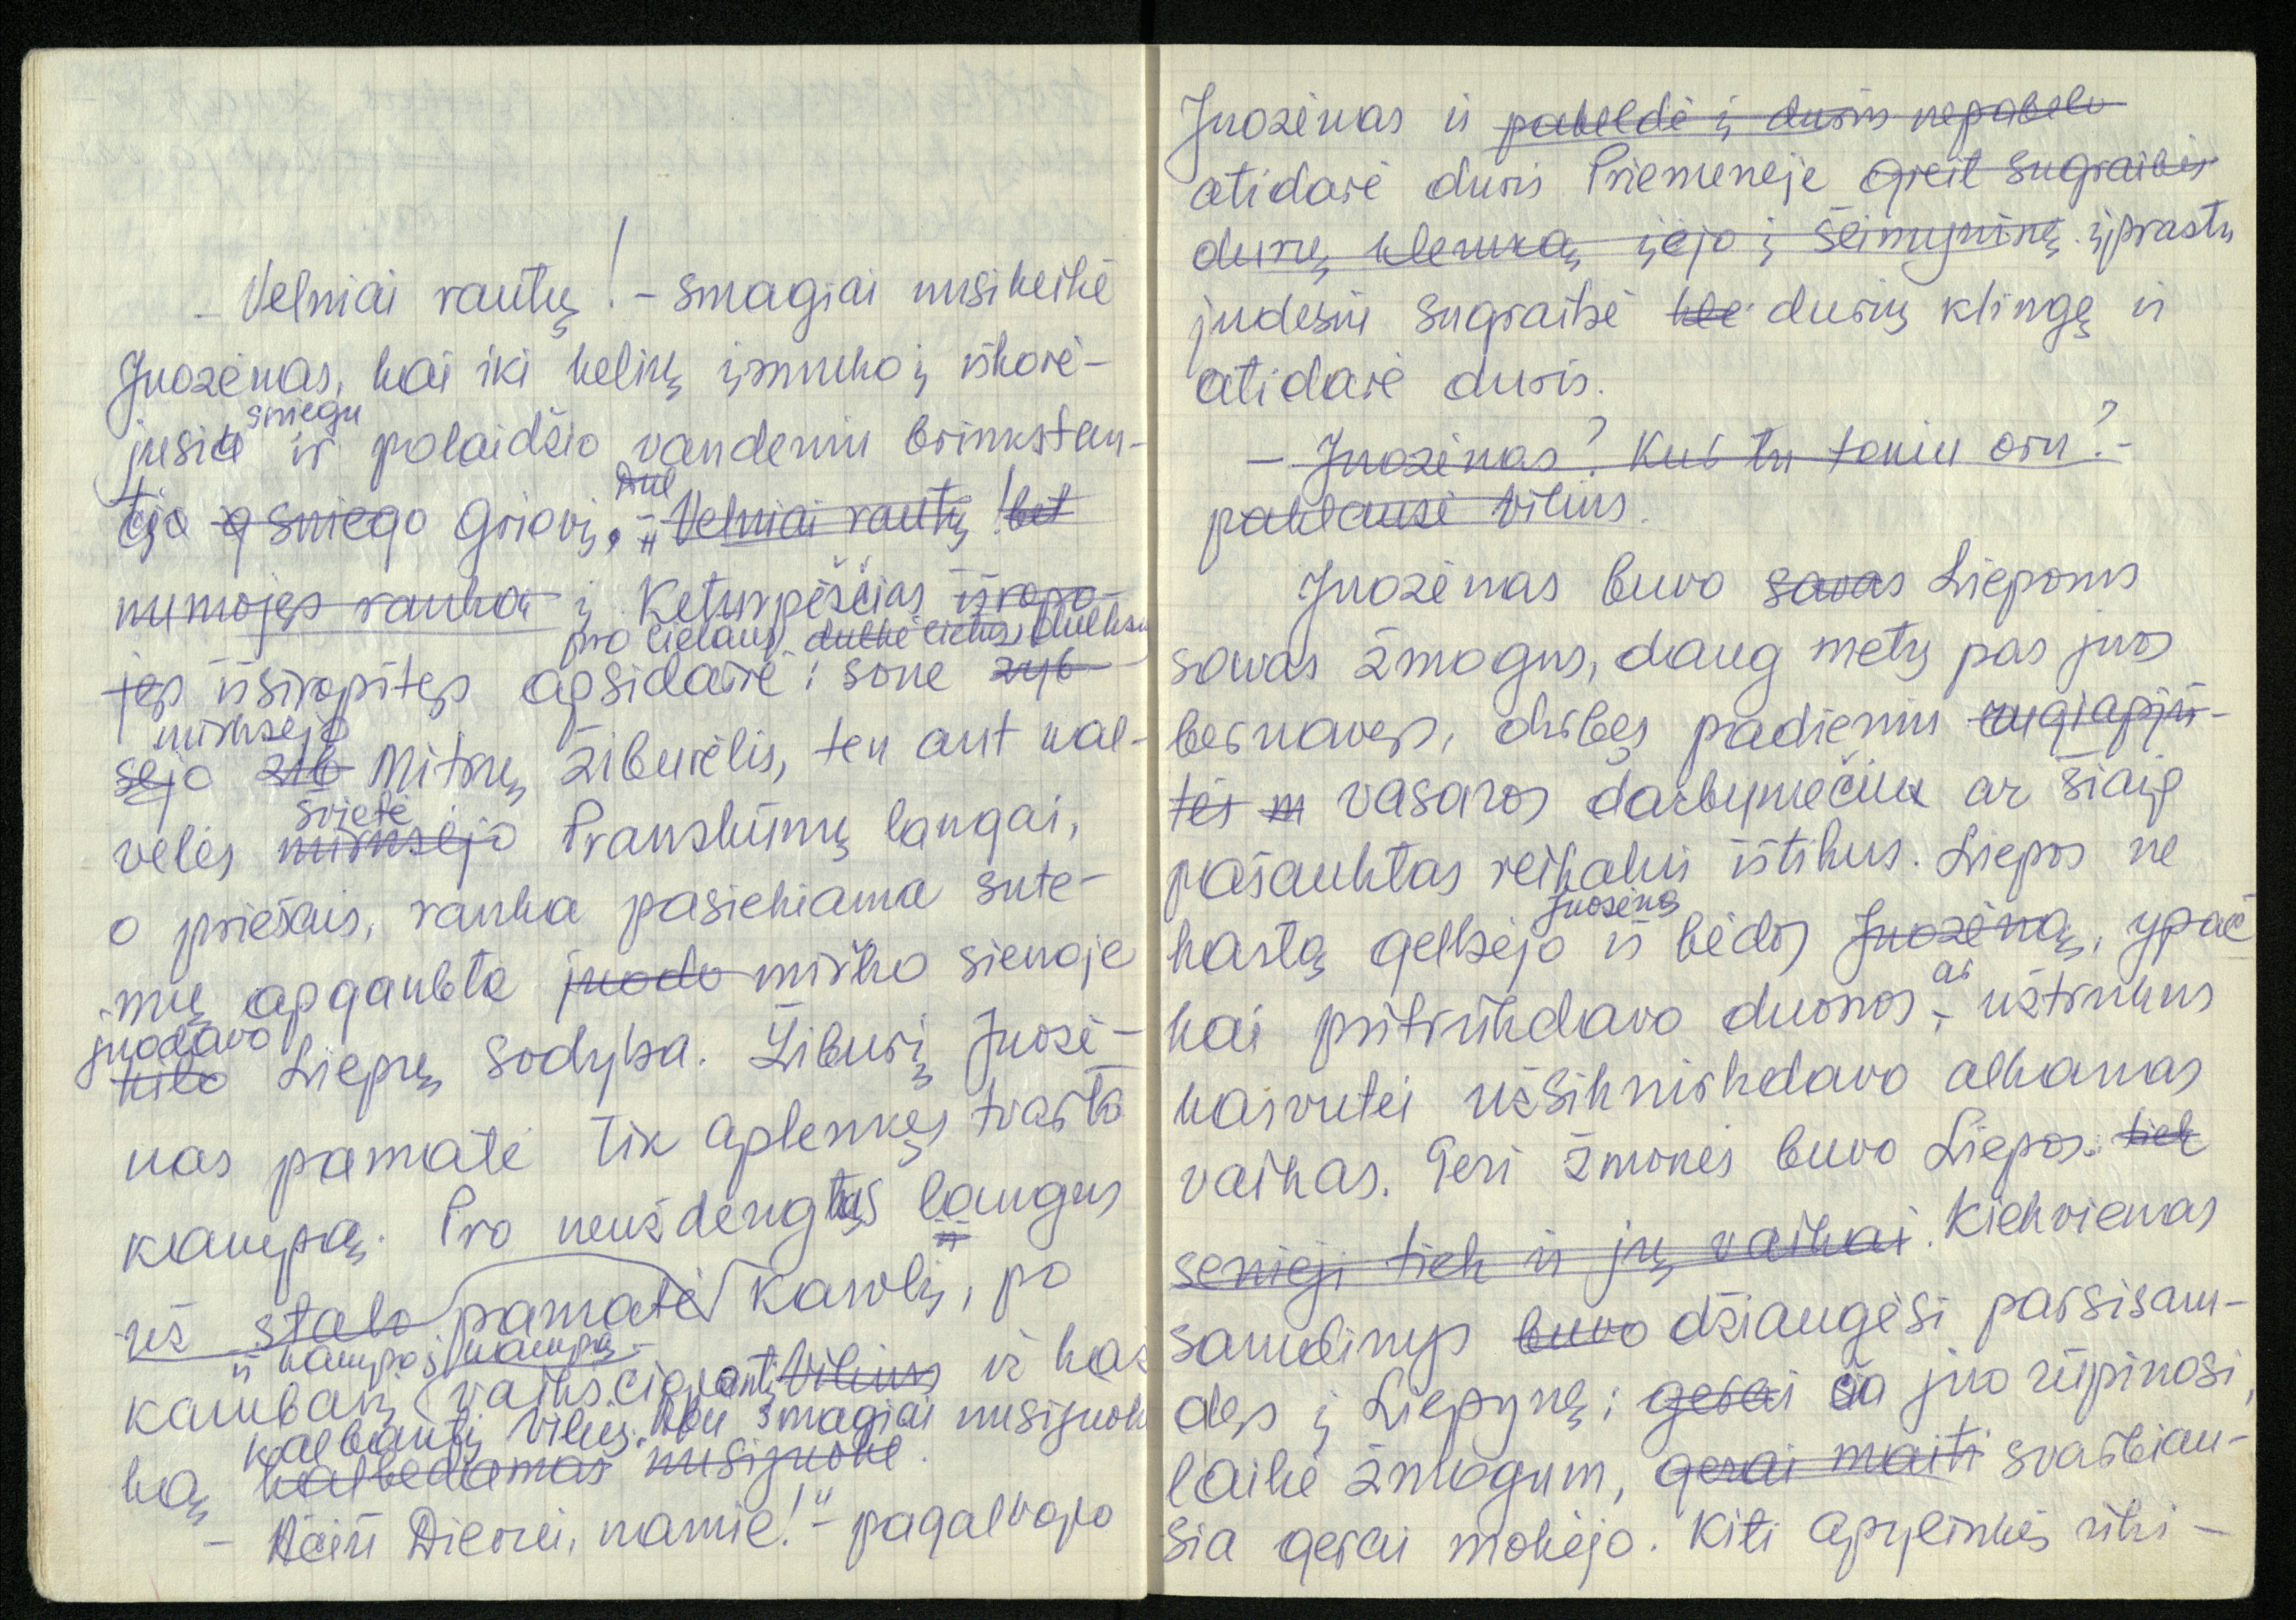 – Velniai rautų! – smagiai nusikeikė
Juozėnas, kai iki kelių įsmuko į iškorė-
jusia sniegu ir polaidžio vandeniu brinkstan-
tįjo sniego griovį. – „Velniai rautų! bet
numojęs ranka į Keturpėsčias išropo-
jęs išsiropštęs apsidairė: pro lietaus dulksn šone
mirksėjo
sėjo žib Mitrų žiburėlis, ten ant kal-
švietė
velės mirksėjo Pranckūnų langai,
o priešais, ranka pasiekiama sute-
mų apgaubta juodo miško sienoje
juodavo
kilo Liepų sodyba. Žiburį Juozė-
nas pamatė tik aplenkęs tvarto
kampą. Pro neuždengtus langus
už stalo pamatė Karolį, po
iš kampo į kampą
kambarį vaikščiojantį Vilius ir kaž
kalbantį Vilių. Abu smagiai nusijuok
ką kalbėdamas nusijuokė.
– Ačiū Dievui, namie!" – pagalvojo
Juozėnas ir pabeldė į duris nepabelo
atidarė duris Priemenėje greit sugraibęs
durų klemką įėjo į šeimyninę. įprastu
judesiu sugraibė kle durų klingę ir
atidarė duris.
– Juozėnas? Kur tu tokiu oru? –
paklausė Vilius.
Juozėnas buvo savas Liepoms
savas žmogus, daug metų pas juos
bernavęs, dirbęs padieniu rugiapjū-
tės m vasaros darbymečiu ar šiaip
pašauktas reikalui ištikus. Liepos ne
Juozėną
kartą gelbėjo iš bėdos Juozėną, ypač
kai pritrūkdavo duonos, ar užtrukus
karvutei užsiknirkdavo alkanas
vaikas. Geri žmonės buvo Liepos. tiek
senieji tiek ir jų vaikai. Kiekvienas
samdinys buvo džiaugėsi parsisam-
dęs į Liepynę; gerai čia juo rūpinosi,
laikė žmogum, gerai maiti svarbiau-
sia gerai mokėjo. Kiti apylinkės ūki-